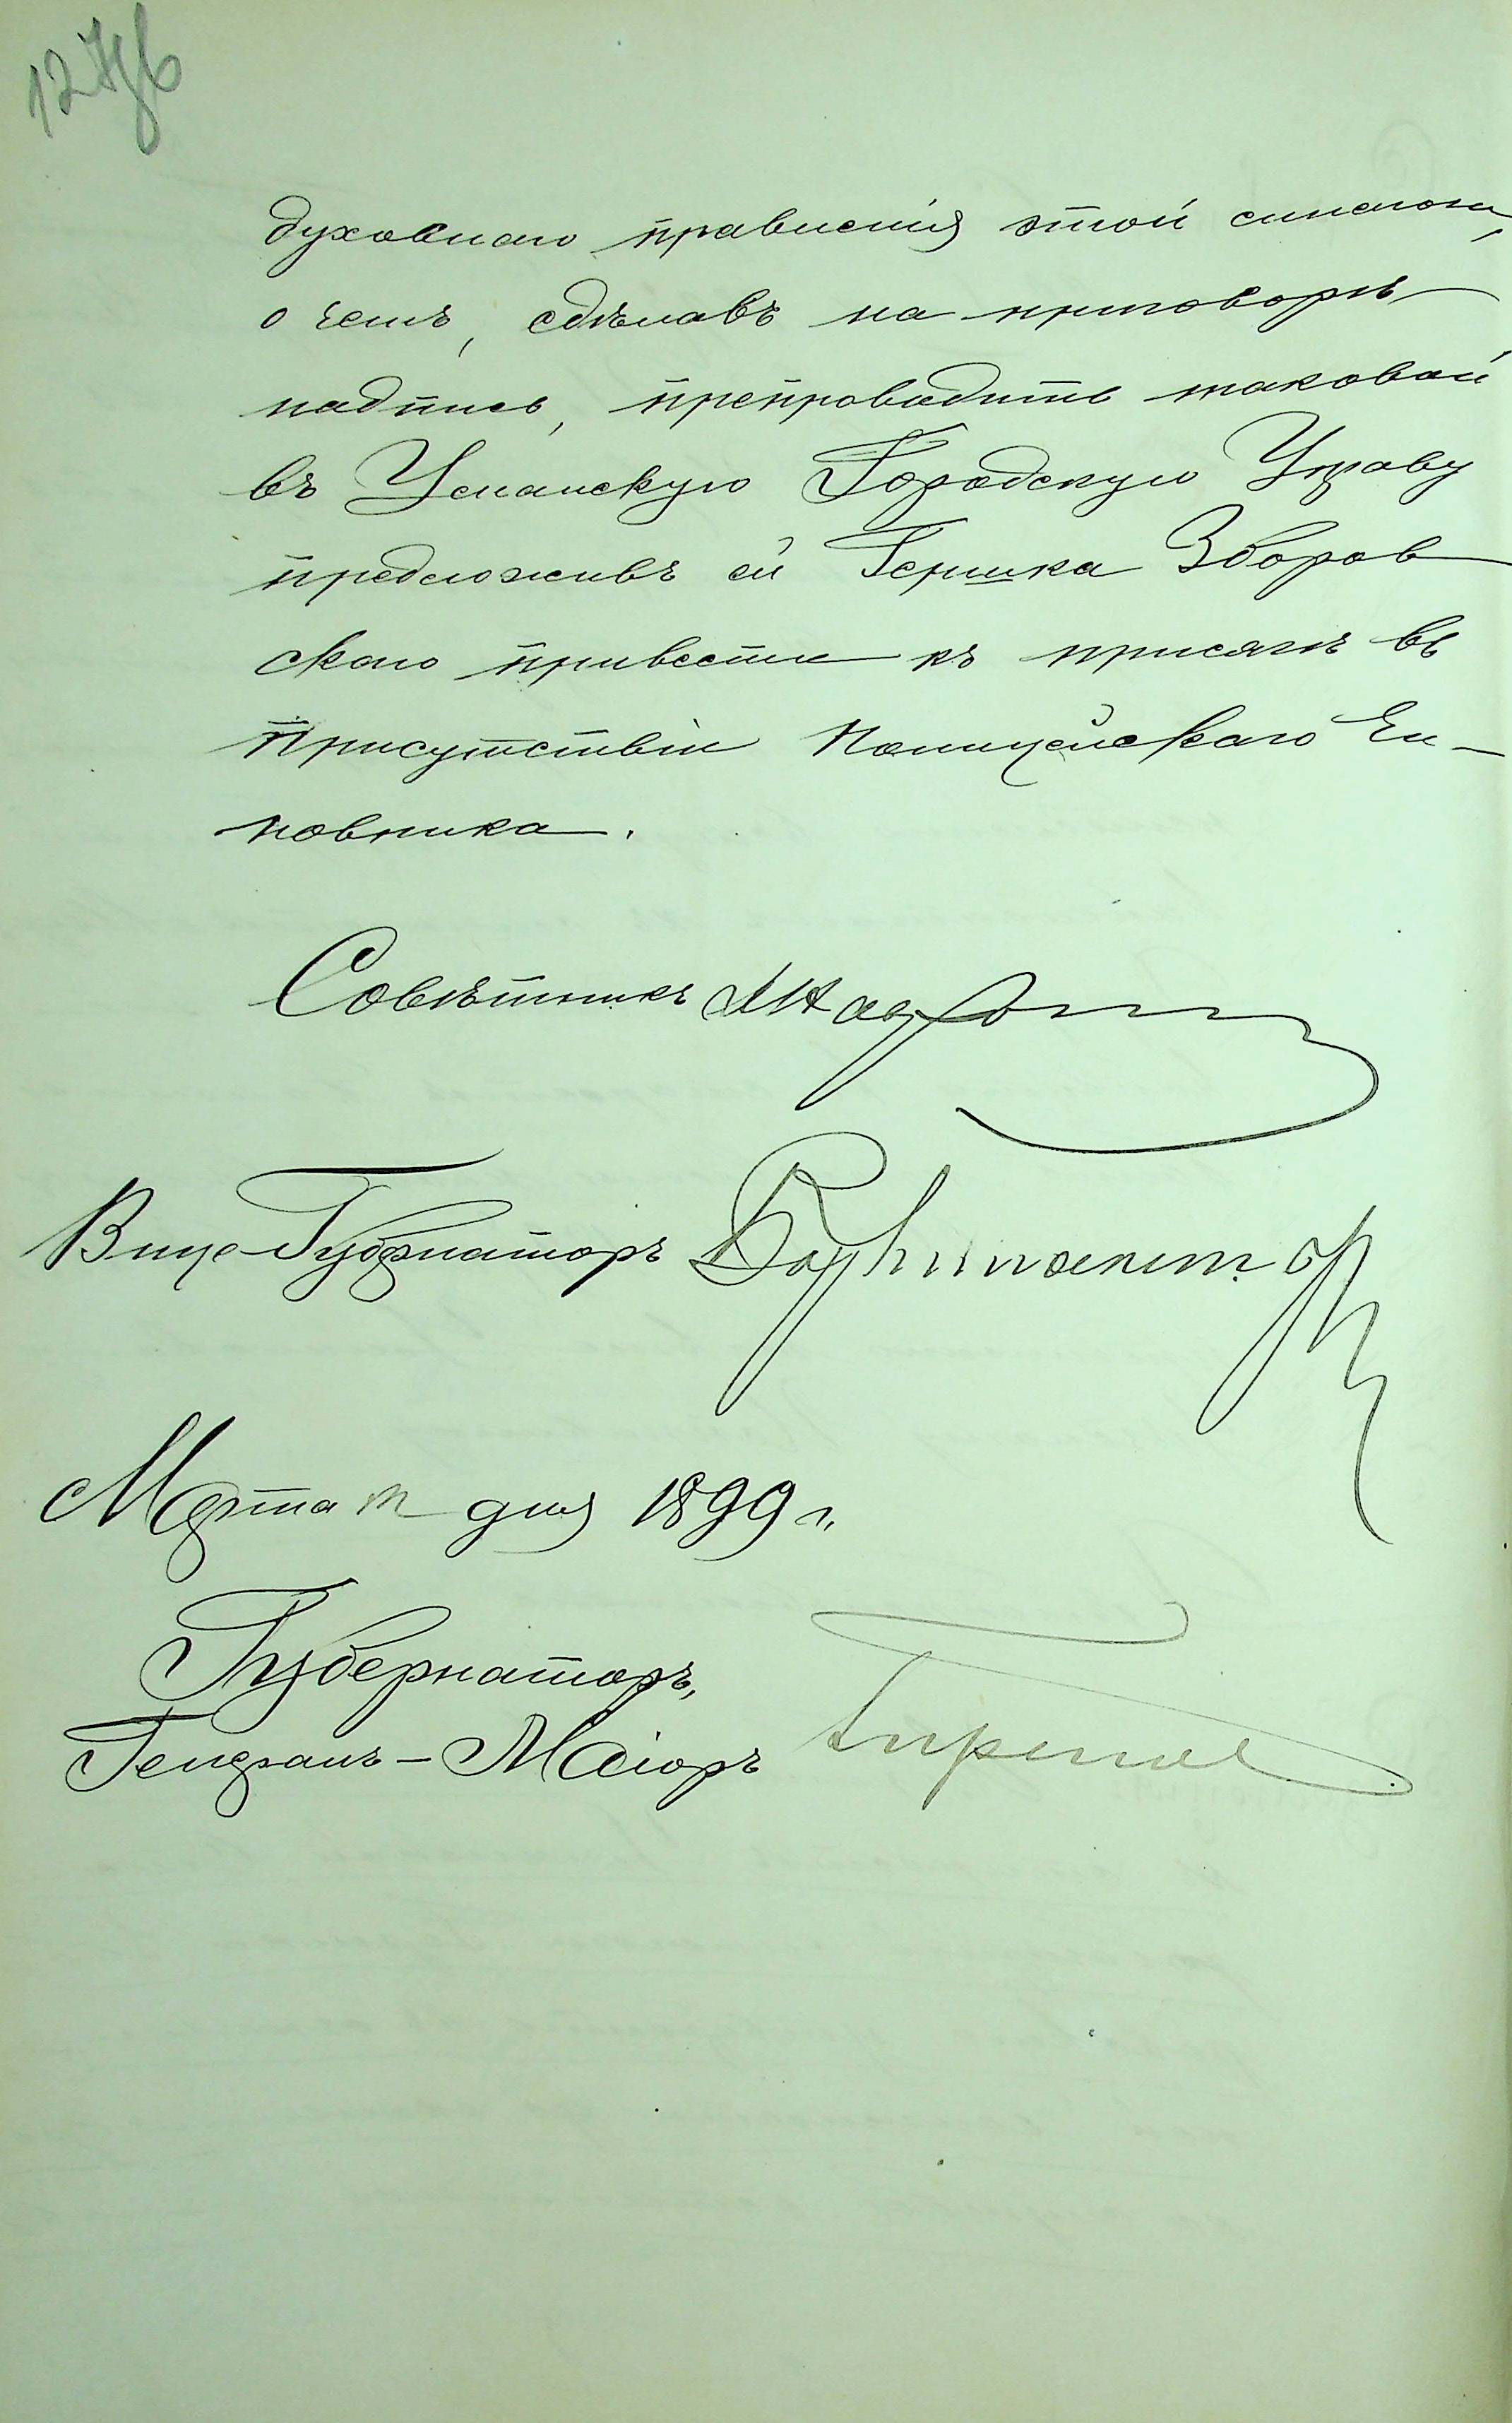 духовнаго правленія этой синагоги,
о чемъ, сдѣлавъ на приговорѣ
надпись, препроводить таковой
въ Уманскую Городскую Управу
предложивъ ей Гершка Зборов
скаго привести къ присягѣ въ
присутствіи Полицейскаго Чи-
новника.
Совѣтникъ
Вице-Губернаторъ
Марта дня 1899 г.
Губернаторъ,
Генералъ-Маіоръ